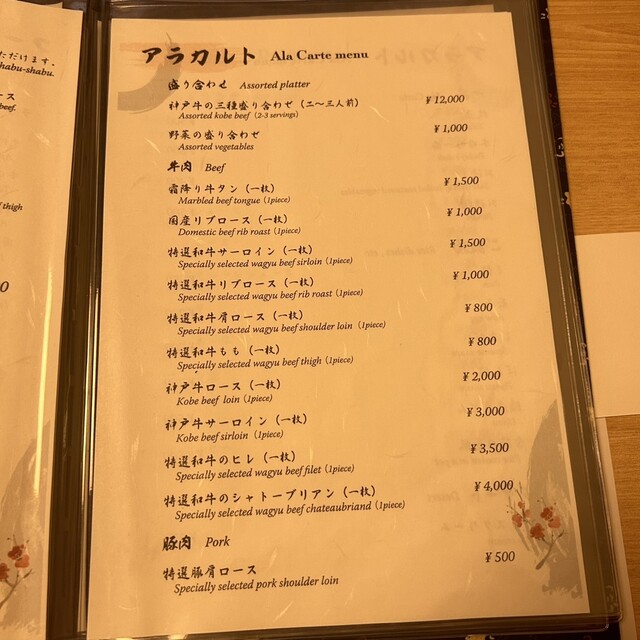 ただけます。
habu-shabu.
ース
beef.
thigh
アラカルト Ala Carte menu
盛り合わせ Assorted platter
神戸牛の三種盛り合わせ（二～三人前） ¥12,000
Assorted kobe beef（2-3 servings）
野菜の盛り合わせ ¥1,000
Assorted vegetables
牛肉 Beef
霜降り牛タン（一枚） ¥1,500
Marbled beef tongue（1piece）
国産リブロース（一枚） ¥1,000
Domestic beef rib roast（1piece）
特選和牛サーロイン（一枚） ¥1,500
Specially selected wagyu beef sirloin（1piece）
特選和牛リブロース（一枚） ¥1,000
Specially selected wagyu beef rib roast（1piece）
特選和牛肩ロース（一枚） ¥800
Specially selected wagyu beef shoulder loin（1piece）
特選和牛もも（一枚） ¥800
Specially selected wagyu beef thigh（1piece）
神戸牛ロース（一枚） ¥2,000
Kobe beef loin（1piece）
神戸牛サーロイン（一枚） ¥3,000
Kobe beef sirloin（1piece）
特選和牛のヒレ（一枚） ¥3,500
Specially selected wagyu beef filet（1piece）
特選和牛のシャトーブリアン（一枚） ¥4,000
Specially selected wagyu beef chateaubriand（1piece）
豚肉 Pork
特選豚肩ロース ¥500
Specially selected pork shoulder loin